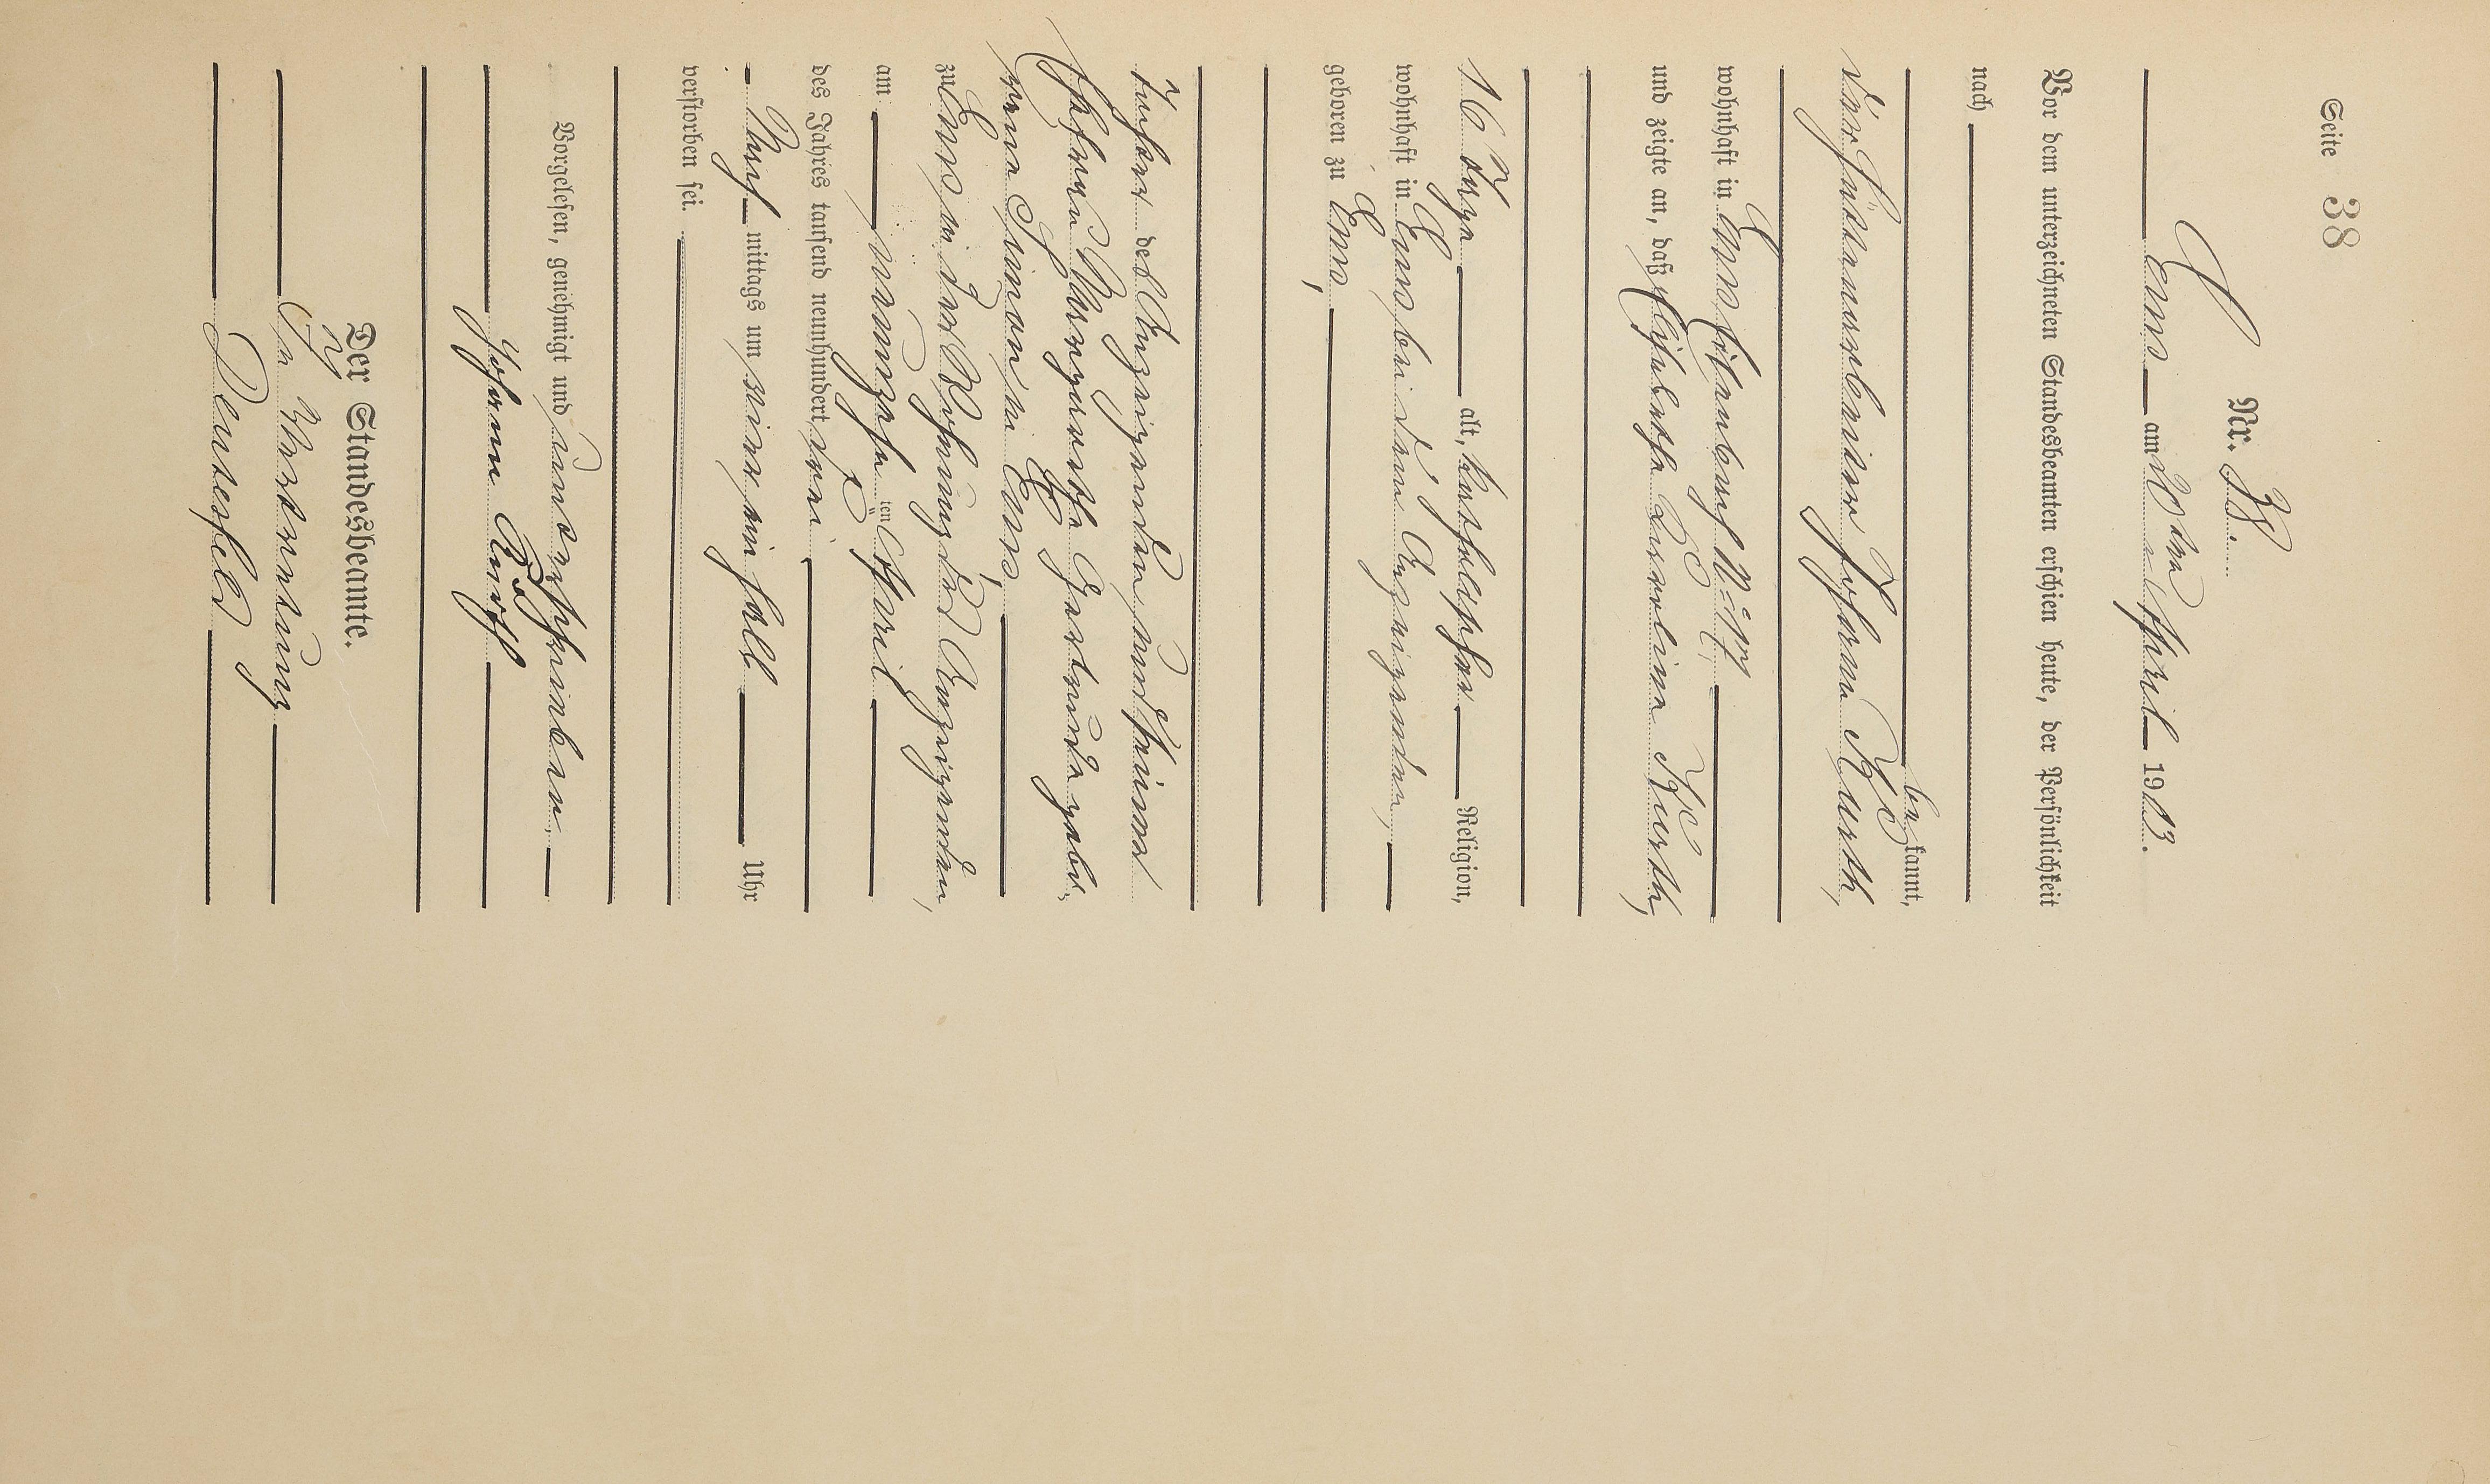 Seite 38
Nr. 38.
Ems am 20ten April 1903.
Vor dem unterzeichneten Standesbeamten erschien heute, der Persönlichkeit
nach
be kannt,
der Johann Kurth,
wohnhaft in Ems
und zeigte an, daß Elisabetha Karolina Kurth,
16 Tage alt, katholischer Religion,
wohnhaft in Ems bei dem Anzeigenden,
geboren zu Ems,
Tochter des Anzeigenden und seiner
Ehefrau Margaretha Gertrude gebo-
rene Simon in Ems,
zu Ems in der Wohnung des Anzeigenden,
am neunzehnten April
des Jahres tausend neunhundert drei
Nach mittags um Uhr
verstorben sei.
Vorgelesen, genehmigt und unterschrieben.
Johann Kurth
Der Standesbeamte.
In Vertretung